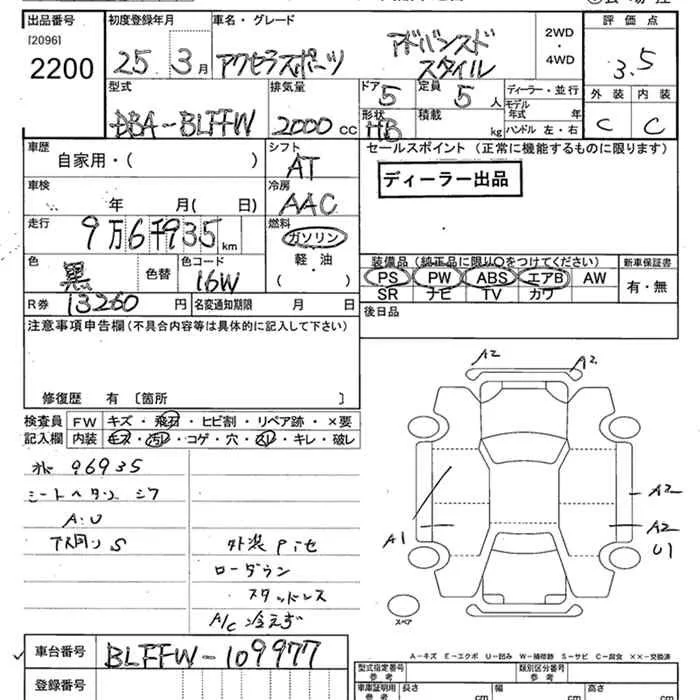 出品番号 初度登録年月 車名・グレード 評価点
[2096]
2200
25年 3月 アクセラスポーツ アドバンスドスタイル 2WD・4WD 3.5
型式 排気量 ドア 定員 ディーラー・並行 外装 内装
DBA-BLFFW 2000cc 5 5人 モデル年式 年 C C
形状 積載
HB kg ハンドル 左・右
車歴 シフト セールスポイント (正常に機能するものに限ります)
自家用・( ) AT
ディーラー出品
車検 冷房
年 月( 日) AAC
走行 燃料
9万6千935km ガソリン
軽・油
( )
色 色替 色コード
黒 16W
装備品 (純正品に限り○をつけてください) 新車保証書
PS PW ABS エアB AW 有・無
SR ナビ TV カワ
R券 13260円 名変通知期限 月 日
後日品
注意事項申告欄(不具合内容等は具体的に記入して下さい)
修復歴 有 〔箇所 〕
検査員 FW キズ・飛石・ヒビ割・リペア跡・×要
記入欄 内装 キズ・汚レ・コゲ・穴・スレ・キレ・破レ
96935
A.U
下廻り S
外装 Pieセ
ローダウン
スタッドレス
A/C 冷えず
A2 A2
A1
A2
A2
U1
スペア
A-キズ E-エクボ U-凹み W-補修跡 S-サビ C-腐食 ××-交換済
車台番号 BLFFW-109977
登録番号
型式指定番号 参考 類別区分番号 参考
車庫証明用 参考 長さ cm 幅 cm 高さ cm